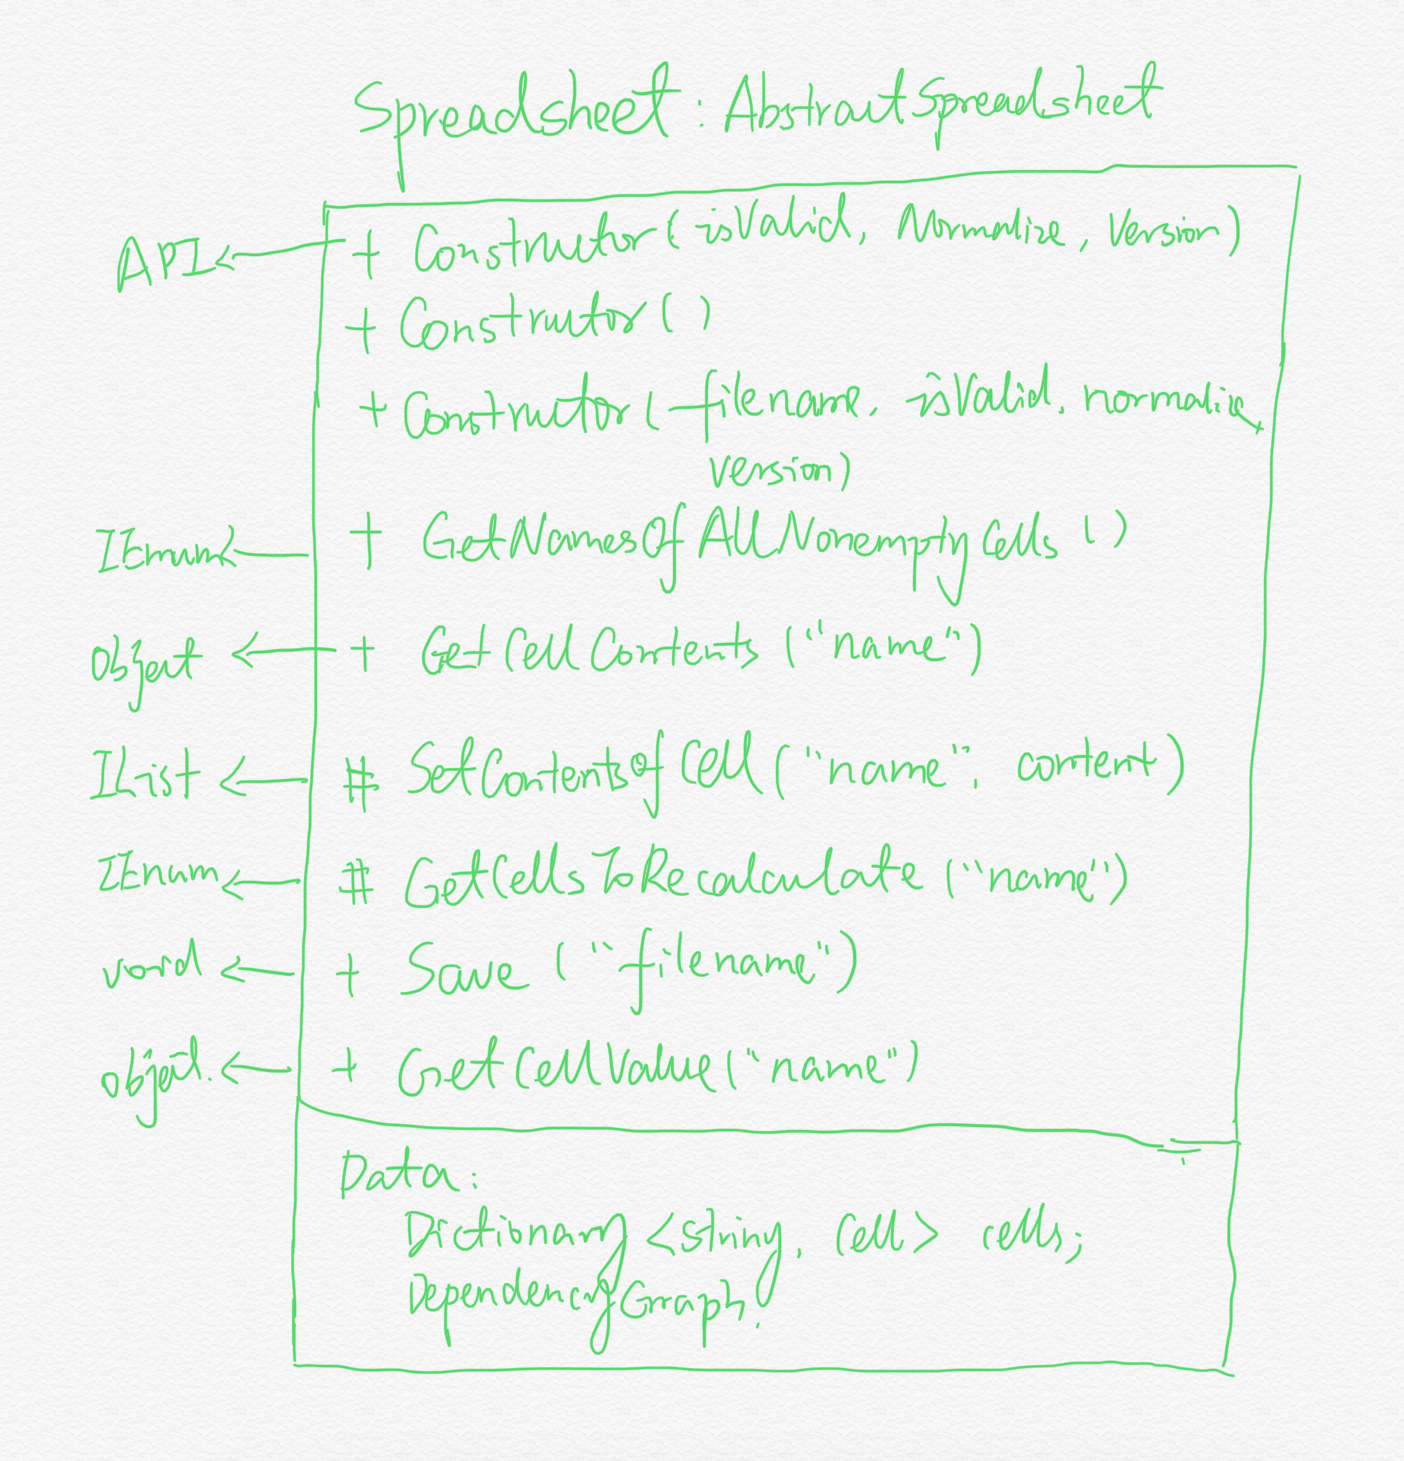 Spreadsheet : AbstractSpreadsheet
API ← + Constructor(isValid, Normalize, Version)
+ Constructor()
+ Constructor(filename, isValid, normalize,
version)
IEnum ← + GetNamesOfAllNonemptyCells ()
Object ← + GetCellContents ("name")
IList ← # SetContentsofCell("name", content)
IEnum ← # GetCellsToRecalculate ("name")
void ← + Save ("filename")
object. ← + GetCellValue("name")
Data:
Dictionary <string, Cell> cells;
DependencyGraph;